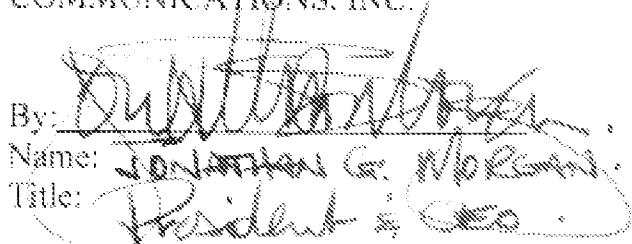 COMMUNICATIONS, INC.
By:
Name: JONATHAN G. MORGAN.
Title: President & CEO.